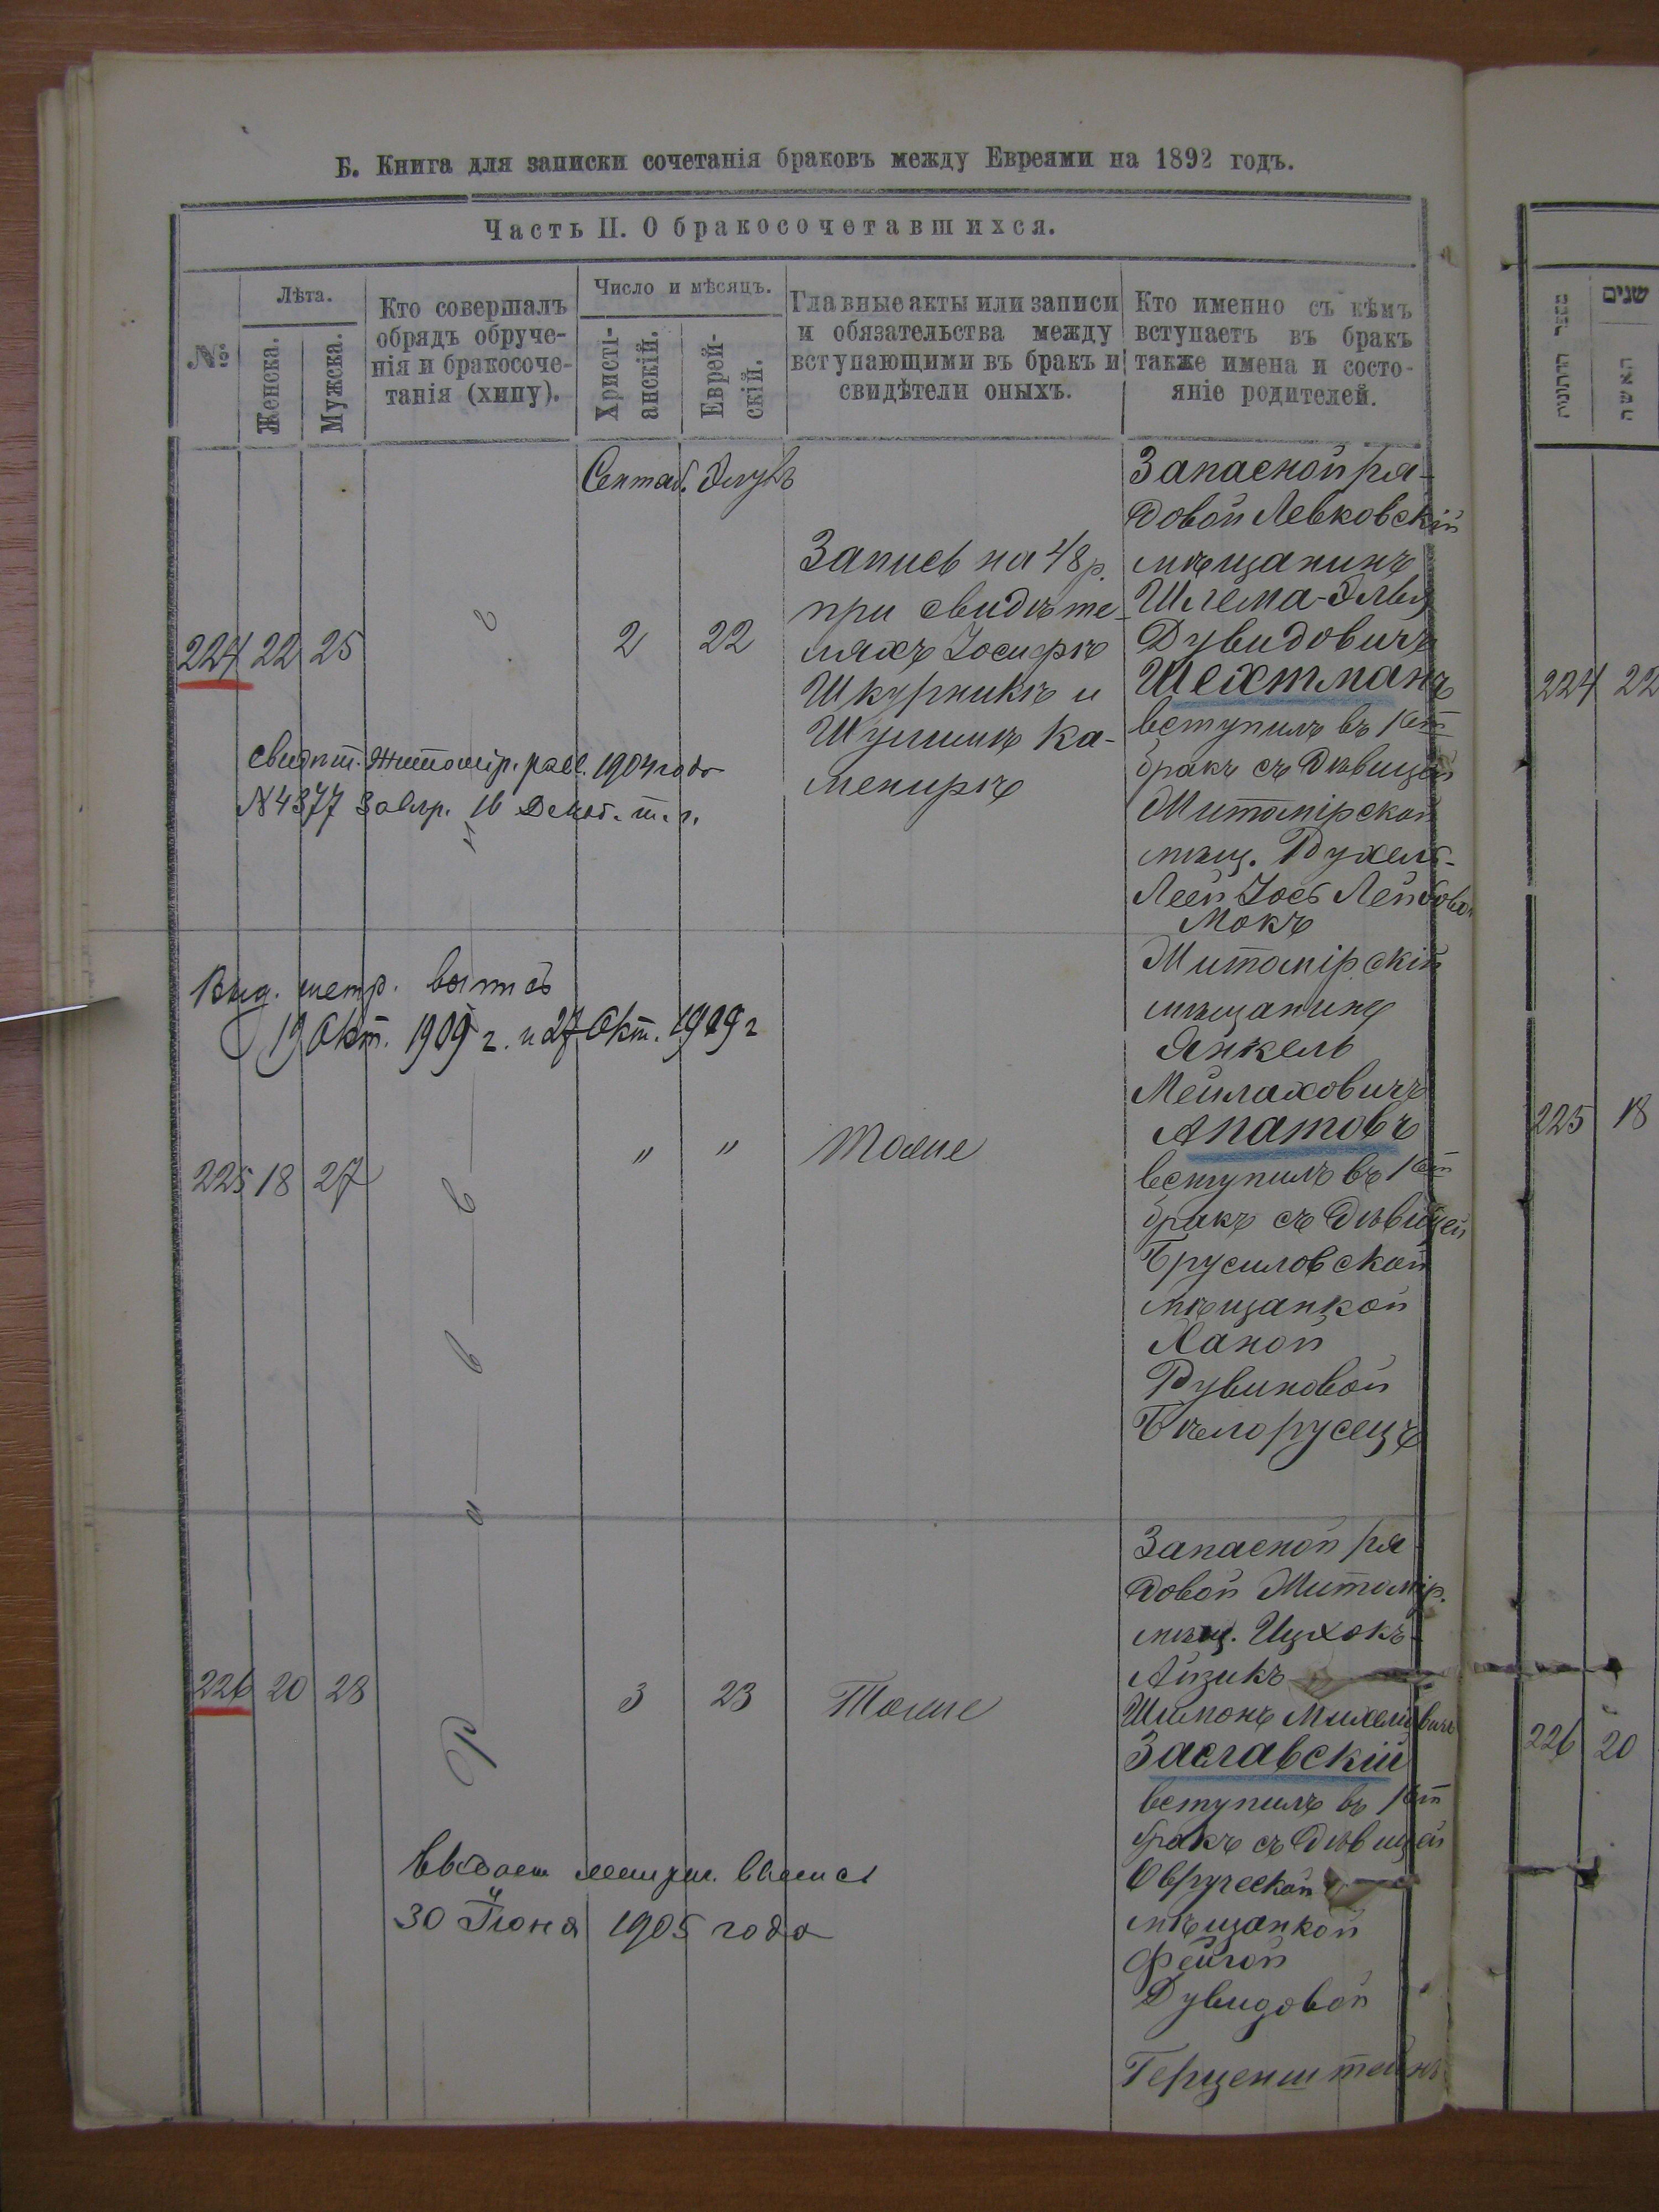 Б. Книга для записки сочетанія браковъ между Евреями на 1892 годъ.
Часть II. О бракосочетавшихся.
№
Лѣта.
Женска.
Мужска.
Кто совершалъ
обрядъ обруче-
нія и бракосоче-
танія (хипу).
Число и мѣсяцъ.
Христі-
анскій.
Еврей-
скій.
Главные акты или записи
и обязательства между
вступающими въ бракъ и
свидѣтели оныхъ.
Кто именно съ кѣмъ
вступаетъ въ бракъ
также имена и состо-
яніе родителей.
Сентяб. Элулъ
224 22 25
2 22
Запись на 48 р.
при свидѣте-
ляхъ Іосифѣ
Шкурникѣ и
Шулимѣ Ка-
менирѣ
Запасной ря-
довой Левковскій
мѣщанинъ
Шлема-Элья
Дувидовичъ
Шехтманъ
вступилъ въ 1ый
бракъ съ дѣвицей
Житомірской
мѣщ. Рухель-
Леей Іосъ Лейбовой
Мокъ
свидѣт. Житомір. равв. 1904 года
№ 4377 Завѣр. 16 Декаб. т. г.
Выд. метр. выпись
19 Окт. 1909 г. и 27 Окт. 1909 г
225 18 27
" "
Тоже
Житомірскій
мѣщанинъ
Янкель
Мейлаховичъ
Апатовъ
вступилъ въ 1ый
бракъ съ дѣвицей
Брусиловской
мѣщанкой
Ханой
Рувиновой
Бѣлорусецъ
226 20 28
3 23
Тоже
Запасной ря-
довой Житомір.
мѣщ. Ицхокъ-
Айзикъ
Шимонъ Михелевичъ
Заславскій
вступилъ въ 1ый
бракъ съ дѣвицей
Овручской
мѣщанкой
Фейгой
Дувидовой
Герценштейнъ
Выдана метрич. выпись
30 Іюня 1905 года
Р а в в и н ъ
מספר החתונות
שנים
האשה
224 22
225 18
226 20